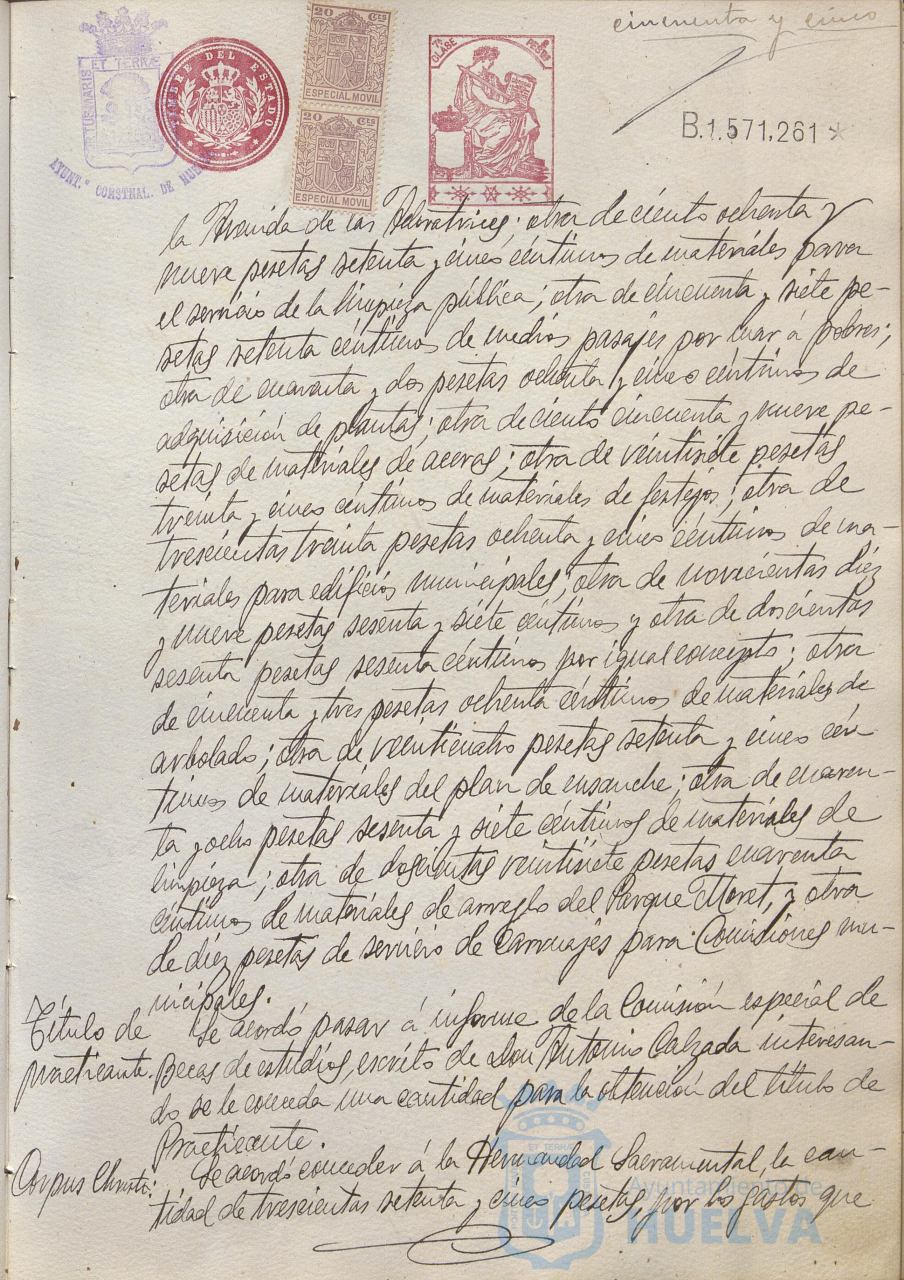 cincuenta y cinco
PORTUS MARIS ET TERRÆ
AYUNT.º CONSTNAL. DE HUELVA
TIMBRE DEL ESTADO
20 Cts
ESPECIAL MOVIL
20 Cts
ESPECIAL MOVIL
7ª CLASE
PESETAS
B.1.571.261 *
la Avenida de las Adoratrices; otra de ciento ochenta y
nueve pesetas setenta y cinco céntimos de materiales para
el servicio de la limpieza pública; otra de cincuenta y siete pe-
setas setenta céntimos de medios pasajes por mar á pobres;
otra de cuarenta y dos pesetas ochenta y cinco céntimos de
adquisición de plantas; otra de ciento cincuenta y nueve pe-
setas de materiales de aceras; otra de veintisiete pesetas
treinta y cinco céntimos de materiales de festejos; otra de
trescientas treinta pesetas ochenta y cinco céntimos de ma-
teriales para edificios municipales; otra de novecientas diez
y nueve pesetas sesenta y siete céntimos y otra de doscientas
sesenta pesetas sesenta céntimos por igual concepto; otra
de cincuenta y tres pesetas ochenta céntimos de materiales de
arbolado; otra de veinticuatro pesetas setenta y cinco cén
timos de materiales del plan de ensanche; otra de cuaren-
ta y ocho pesetas sesenta y siete céntimos de materiales de
limpieza; otra de doscientas veintisiete pesetas cuarenta
céntimos de materiales de arreglo del Parque Moret, y otra
de diez pesetas de servicio de carruajes para Comisiones mu-
nicipales.
Título de
practicante.
Se acordó pasar á informe de la Comisión especial de
Becas de estudios, escrito de Don Antonio Calzada interesan-
do se le conceda una cantidad para la obtención del título de
Practicante.
Corpus Christi:
Se acordó conceder á la Hermandad Sacramental, la can-
tidad de trescientas setenta y cinco pesetas, por los gastos que
Ayuntamiento de
HUELVA